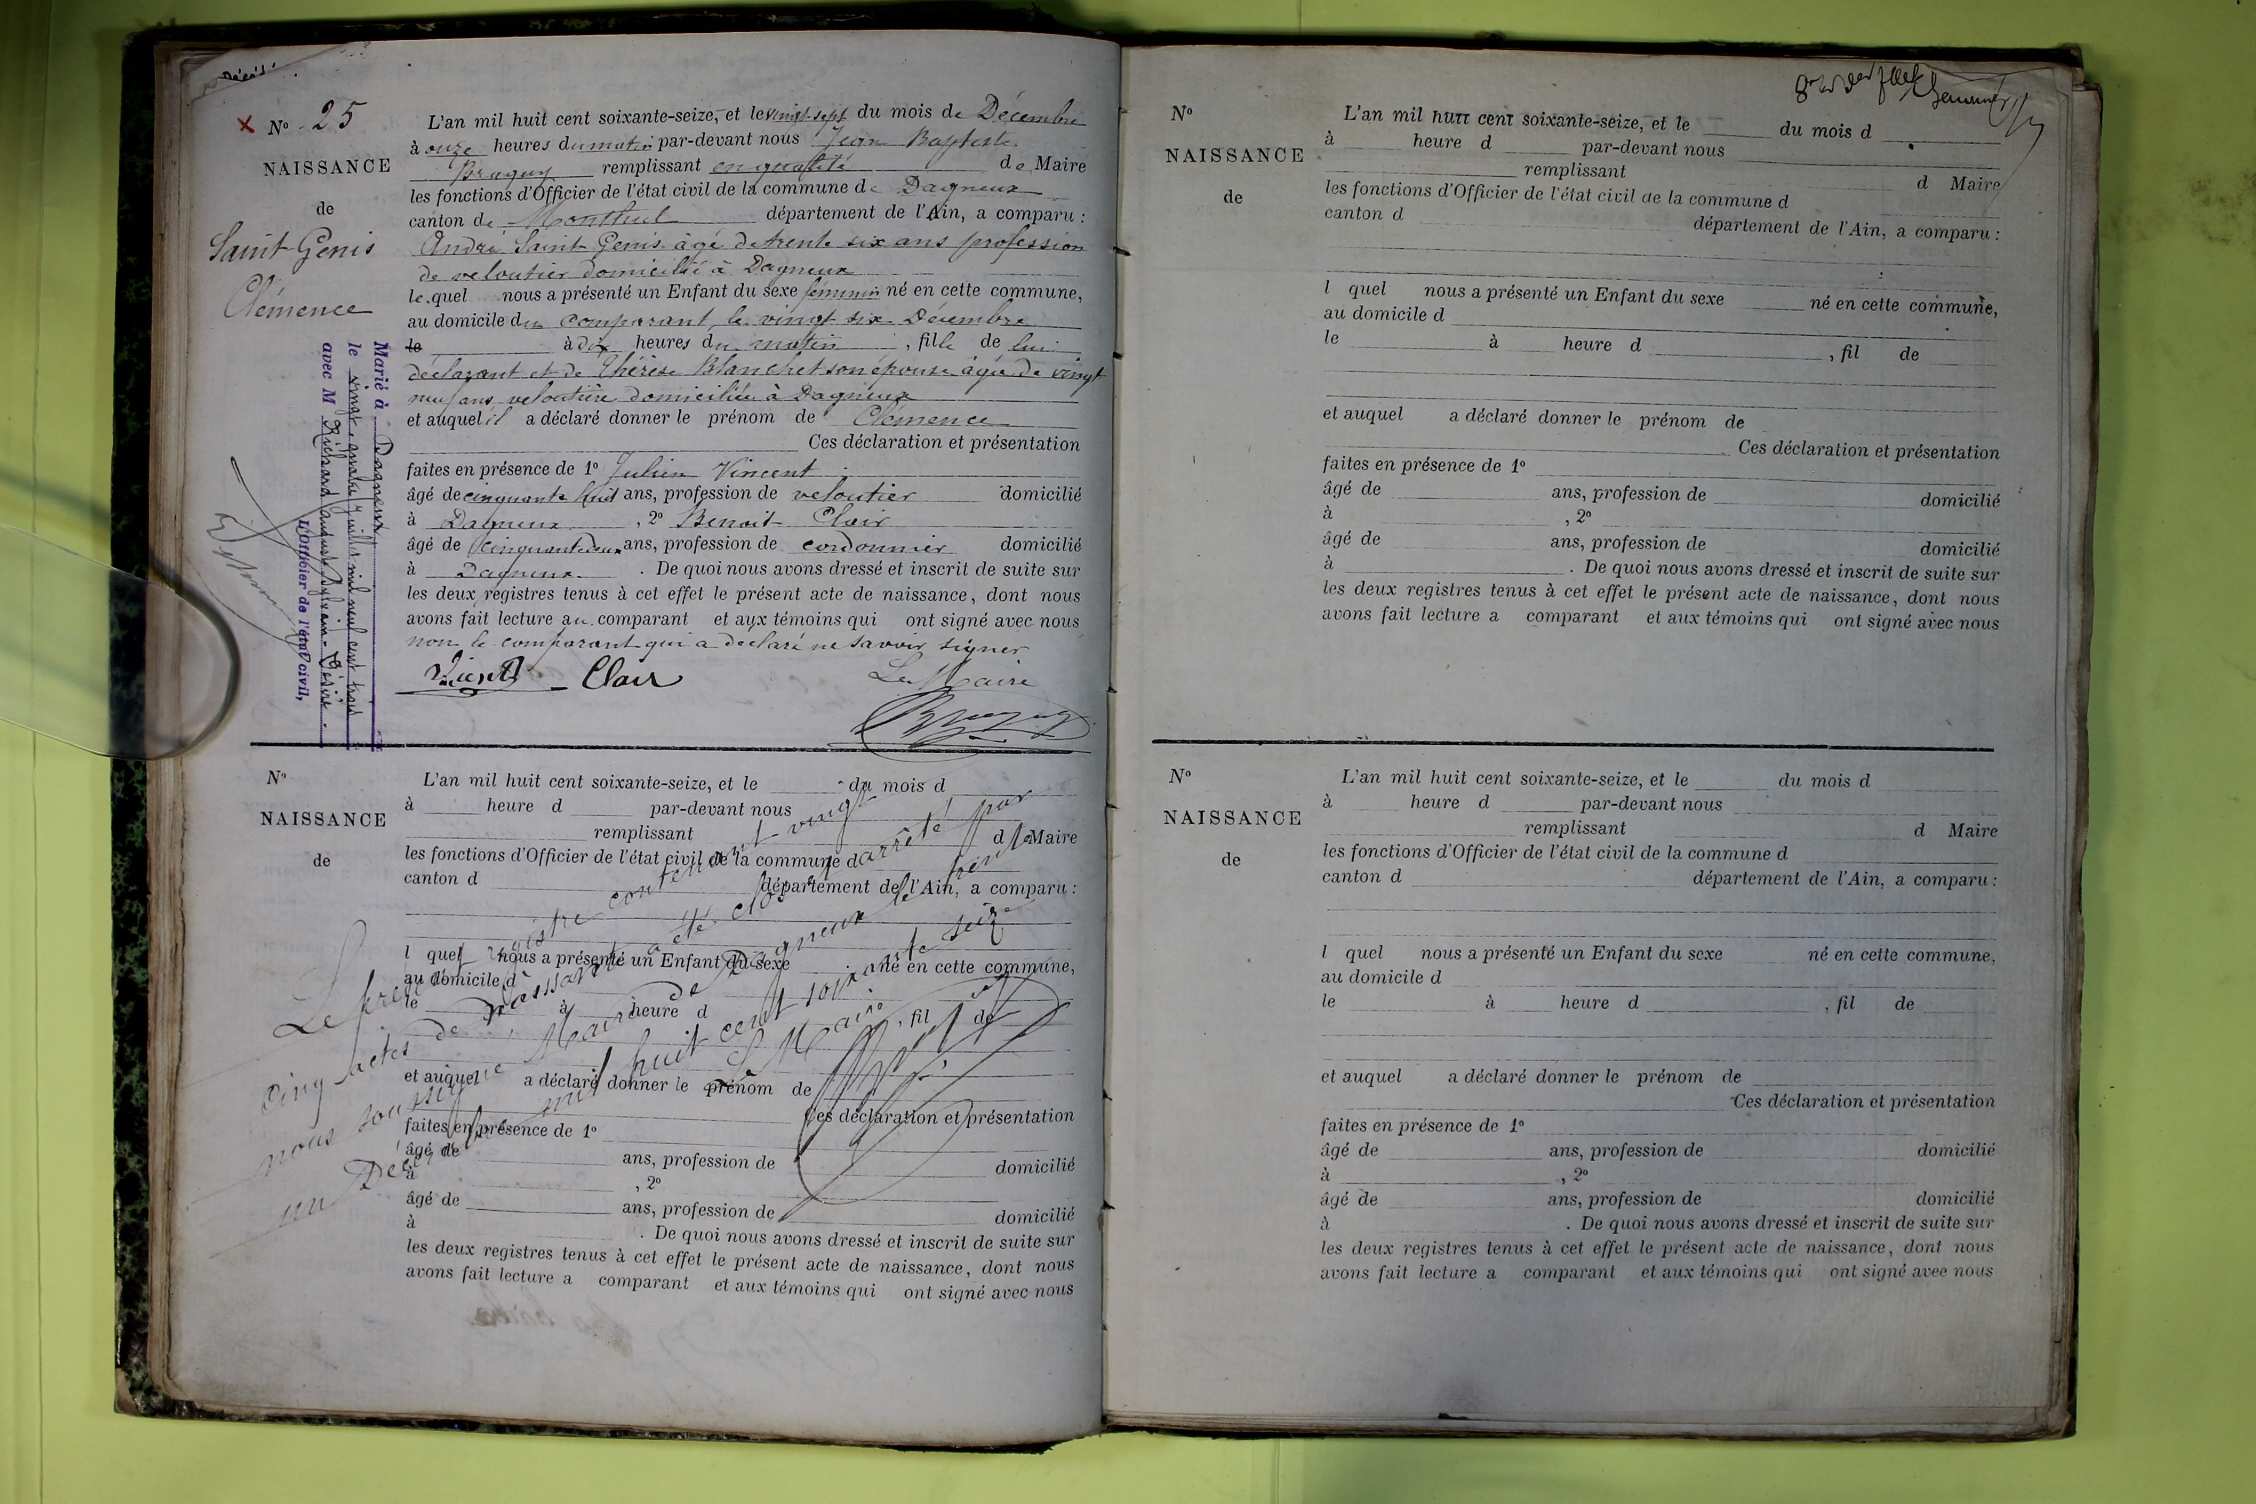 Décédé
N° 25
NAISSANCE
de
Saint Genis
Clémence
L'an mil huit cent soixante-seize, et le vingt-sept du mois de Décembre
à onze heures du matin par-devant nous Jean Baptiste
remplissant en qualité de Maire
les fonctions d'Officier de l'état civil de la commune de Dagneux
canton de Montluel département de l'Ain, a comparu :
André Saint Genis âgé de trente six ans profession
de veloutier domicilié à Dagneux
lequel nous a présenté un Enfant du sexe féminin né en cette commune,
au domicile du comparant le vingt six Décembre
le à Dix heures du matin, fille de lui
déclarant et de Thérèse Blanchet son épouse âgée de vingt
neuf ans veloutière domiciliée à Dagneux
et auquel il a déclaré donner le prénom de Clémence
Ces déclaration et présentation
faites en présence de 1° Julien Vincent
âgé de cinquante huit ans, profession de veloutier domicilié
à Dagneux, 2° Benoit Clair
âgé de cinquante deux ans, profession de cordonnier domicilié
à Dagneux. De quoi nous avons dressé et inscrit de suite sur
les deux registres tenus à cet effet le présent acte de naissance, dont nous
avons fait lecture au comparant et aux témoins qui ont signé avec nous
non le comparant qui a déclaré ne savoir signer
Clair Le Maire
Marié à Dagneux
le vingt quatre juillet mil neuf cent trois
avec M Richard auguste Sylvain Désiré.
L'officier de l'état civil,
N°
NAISSANCE
de
L'an mil huit cent soixante-seize, et le du mois d
à heure d par-devant nous
remplissant d Maire
les fonctions d'Officier de l'état civil de la commune d
canton d département de l'Ain, a comparu :
l quel nous a présenté un Enfant du sexe né en cette commune,
au domicile d
le à heure d , fil de
et auquel a déclaré donner le prénom de
Ces déclaration et présentation
faites en présence de 1°
âgé de ans, profession de domicilié
à , 2°
âgé de ans, profession de domicilié
à . De quoi nous avons dressé et inscrit de suite sur
les deux registres tenus à cet effet le présent acte de naissance, dont nous
avons fait lecture a comparant et aux témoins qui ont signé avec nous
Le présent registre contenant vingt
cinq actes de naissance a été clos et arrêté par
nous soussigné Maire de Dagneux le trente
un Décembre mil huit cent soixante seize
Le Maire
N°
NAISSANCE
de
L'an mil huit cent soixante-seize, et le du mois d
à heure d par-devant nous
remplissant d Maire
les fonctions d'Officier de l'état civil de la commune d
canton d département de l'Ain, a comparu :
l quel nous a présenté un Enfant du sexe né en cette commune,
au domicile d
le à heure d , fil de
et auquel a déclaré donner le prénom de
Ces déclaration et présentation
faites en présence de 1°
âgé de ans, profession de domicilié
à , 2°
âgé de ans, profession de domicilié
à . De quoi nous avons dressé et inscrit de suite sur
les deux registres tenus à cet effet le présent acte de naissance, dont nous
avons fait lecture a comparant et aux témoins qui ont signé avec nous
N°
NAISSANCE
de
L'an mil huit cent soixante-seize, et le du mois d
à heure d par-devant nous
remplissant d Maire
les fonctions d'Officier de l'état civil de la commune d
canton d département de l'Ain, a comparu :
l quel nous a présenté un Enfant du sexe né en cette commune,
au domicile d
le à heure d , fil de
et auquel a déclaré donner le prénom de
Ces déclaration et présentation
faites en présence de 1°
âgé de ans, profession de domicilié
à , 2°
âgé de ans, profession de domicilié
à . De quoi nous avons dressé et inscrit de suite sur
les deux registres tenus à cet effet le présent acte de naissance, dont nous
avons fait lecture a comparant et aux témoins qui ont signé avec nous